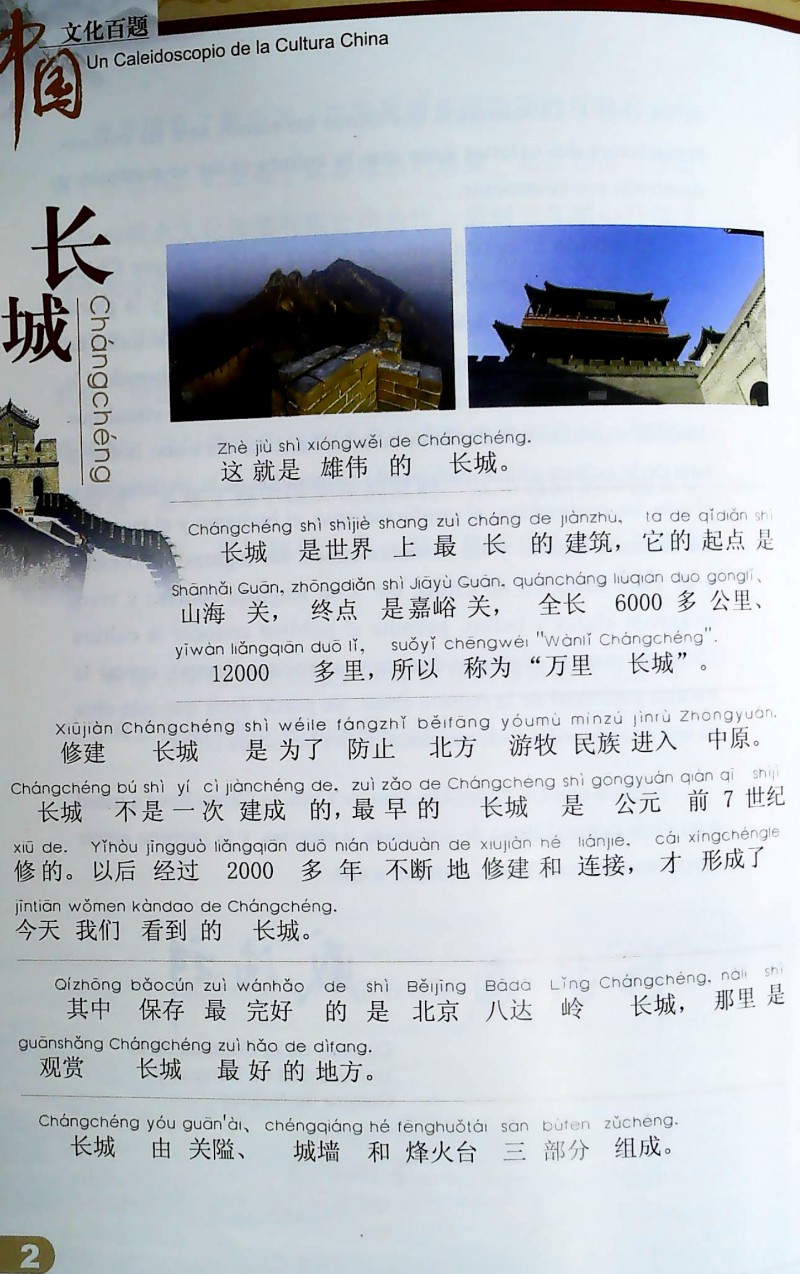 中国
文化百题
Un Caleidoscopio de la Cultura China
长城
Chángchéng
Zhè jiù shì xióngwěi de Chángchéng.
这 就是 雄伟 的 长城。
Chángchéng shì shìjiè shang zuì cháng de jiànzhù、 ta de qǐdiǎn shì
长城 是世界 上 最 长 的 建筑，它的 起点 是
Shānhǎi Guān, zhōngdiǎn shì Jiāyù Guān, quáncháng liùqiān duō gōnglǐ、
山海 关， 终点 是嘉峪 关， 全长 6000 多 公里、
yīwàn liǎngqiān duō lǐ, suǒyǐ chēngwéi "Wànlǐ Chángchéng".
12000 多里，所以 称为 “万里 长城”。
Xiūjiàn Chángchéng shì wèile fángzhǐ běifāng yóumù mínzú jìnrù Zhōngyuán.
修建 长城 是 为了 防止 北方 游牧 民族 进入 中原。
Chángchéng bú shì yí cì jiànchéng de, zuì zǎo de Chángchéng shì gōngyuán qián qī shìjì
长城 不是 一 次 建成 的，最 早 的 长城 是 公元 前 7 世纪
xiū de. Yǐhòu jīngguò liǎngqiān duō nián búduàn de xiūjiàn hé liánjiē, cái xíngchéngle
修 的。以后 经过 2000 多 年 不断 地 修建 和 连接，才 形成了
jīntiān wǒmen kàndao de Chángchéng.
今天 我们 看到 的 长城。
Qízhōng bǎocún zuì wánhǎo de shì Běijīng Bādá Lǐng Chángchéng, nàli shì
其中 保存 最 完好 的 是 北京 八达 岭 长城，那里 是
guānshǎng Chángchéng zuì hǎo de dìfang.
观赏 长城 最 好 的 地方。
Chángchéng yóu guān'ài、chéngqiáng hé fēnghuǒtái sān bùfen zǔchéng.
长城 由 关隘、 城墙 和 烽火台 三 部分 组成。
2